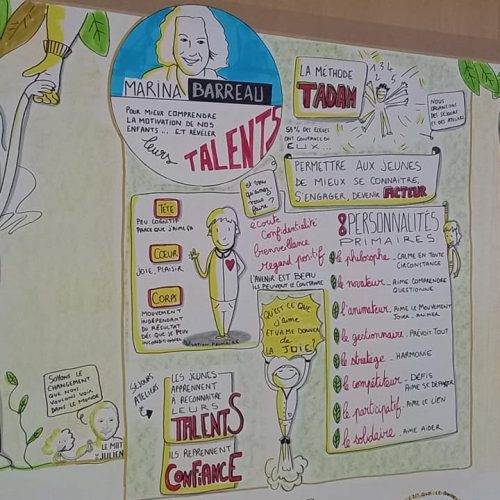 MARINA BARREAU
POUR MIEUX COMPRENDRE
LA MOTIVATION DE NOS
ENFANTS... ET RÉVÉLER
leurs
TALENTS
LA MÉTHODE
TADAM
1 2 3 4 5
58% DES ÉLÈVES
ONT CONFIANCE EN
EUX...
NOUS
ORGANISONS
DES SÉJOURS
ET DES ATELIERS
PERMETTRE AUX JEUNES
DE MIEUX SE CONNAITRE,
S'ENGAGER, DEVENIR ACTEUR
TÊTE
PEU COGNITIF
PARCE QUE J'AIME ÇA
CŒUR
JOIE, PLAISIR
CORPS
MOUVEMENT
INDÉPENDANT
DU RÉSULTAT
DÈS QUE JE PEUX
INCONDITIONNEL
MOTIVATION PRIMAIRE
écoute
Confidentialité
bienveillance
Regard positif
L'AVENIR EST BEAU
ILS PEUVENT LE CONSTRUIRE
QU'EST CE QUE
J'aime
ET VA ME DONNER
de
LA JOIE?
8 PERSONNALITÉS
PRIMAIRES
le philosophe - CALME EN TOUTE
CIRCONSTANCE
le novateur - AIME COMPRENDRE
QUESTIONNE
l'animateur - AIME LE MOUVEMENT
JOUER ANIMER
le gestionnaire - PRÉVOIT TOUT
le stratège - HARMONIE
le compétiteur - DÉFIS
AIME SE DÉPASSER
le participatif - AIME LE LIEN
le solidaire - AIME AIDER
SÉJOURS
ATELIERS
LES JEUNES
APPRENNENT
À RECONNAÎTRE
LEURS
TALENTS
ILS REPRENNENT
CONFIANCE
SOYONS LE
CHANGEMENT
QUE NOUS
VOULONS VOIR
DANS LE MONDE
LE MOT
JULIEN